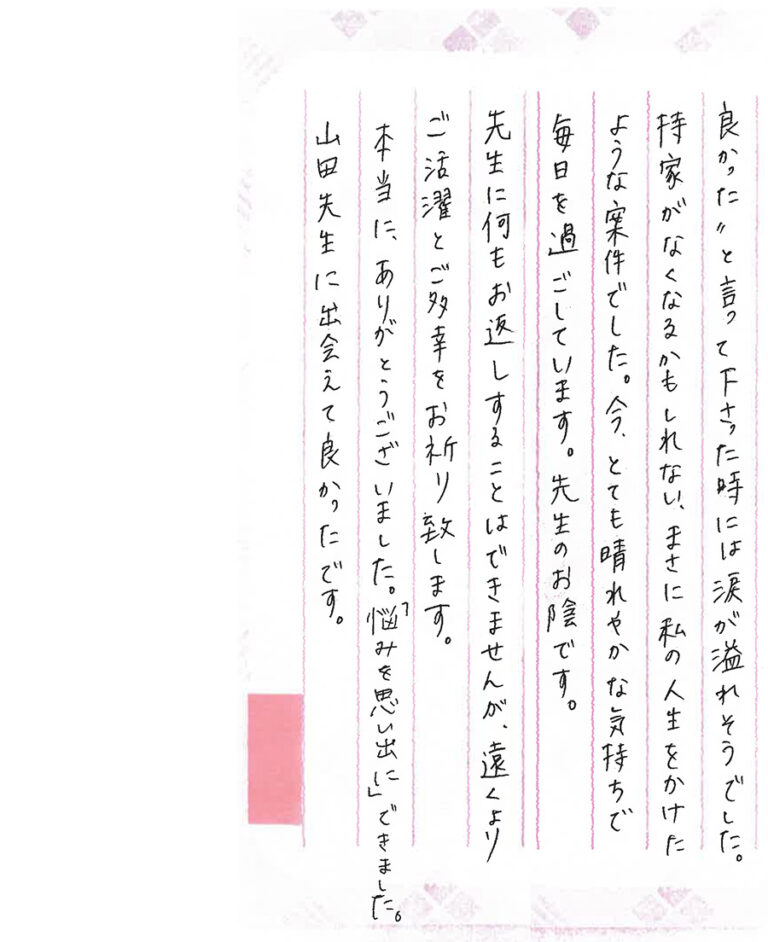 良かった〃と言って下さった時には涙が溢れそうでした。
持家がなくなるかもしれない、まさに私の人生をかけた
ような案件でした。今、とても晴れやかな気持ちで
毎日を過ごしています。先生のお陰です。
先生に何もお返しすることはできませんが、遠くより
ご活濯とご多幸をお祈り致します。
本当に、ありがとうございました。「悩みを思い出に」できました。
山田先生に出会えて良かったです。